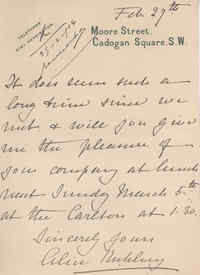 Feb. 27th
TELEPHONE
Moore Street.
Cadogan Square. S.W.
It does seem such a
long time since we
met & will you give
me the pleasure of
your company at lunch
next Sunday March 5th
at the Carlton at 1.30.
Sincerely yours